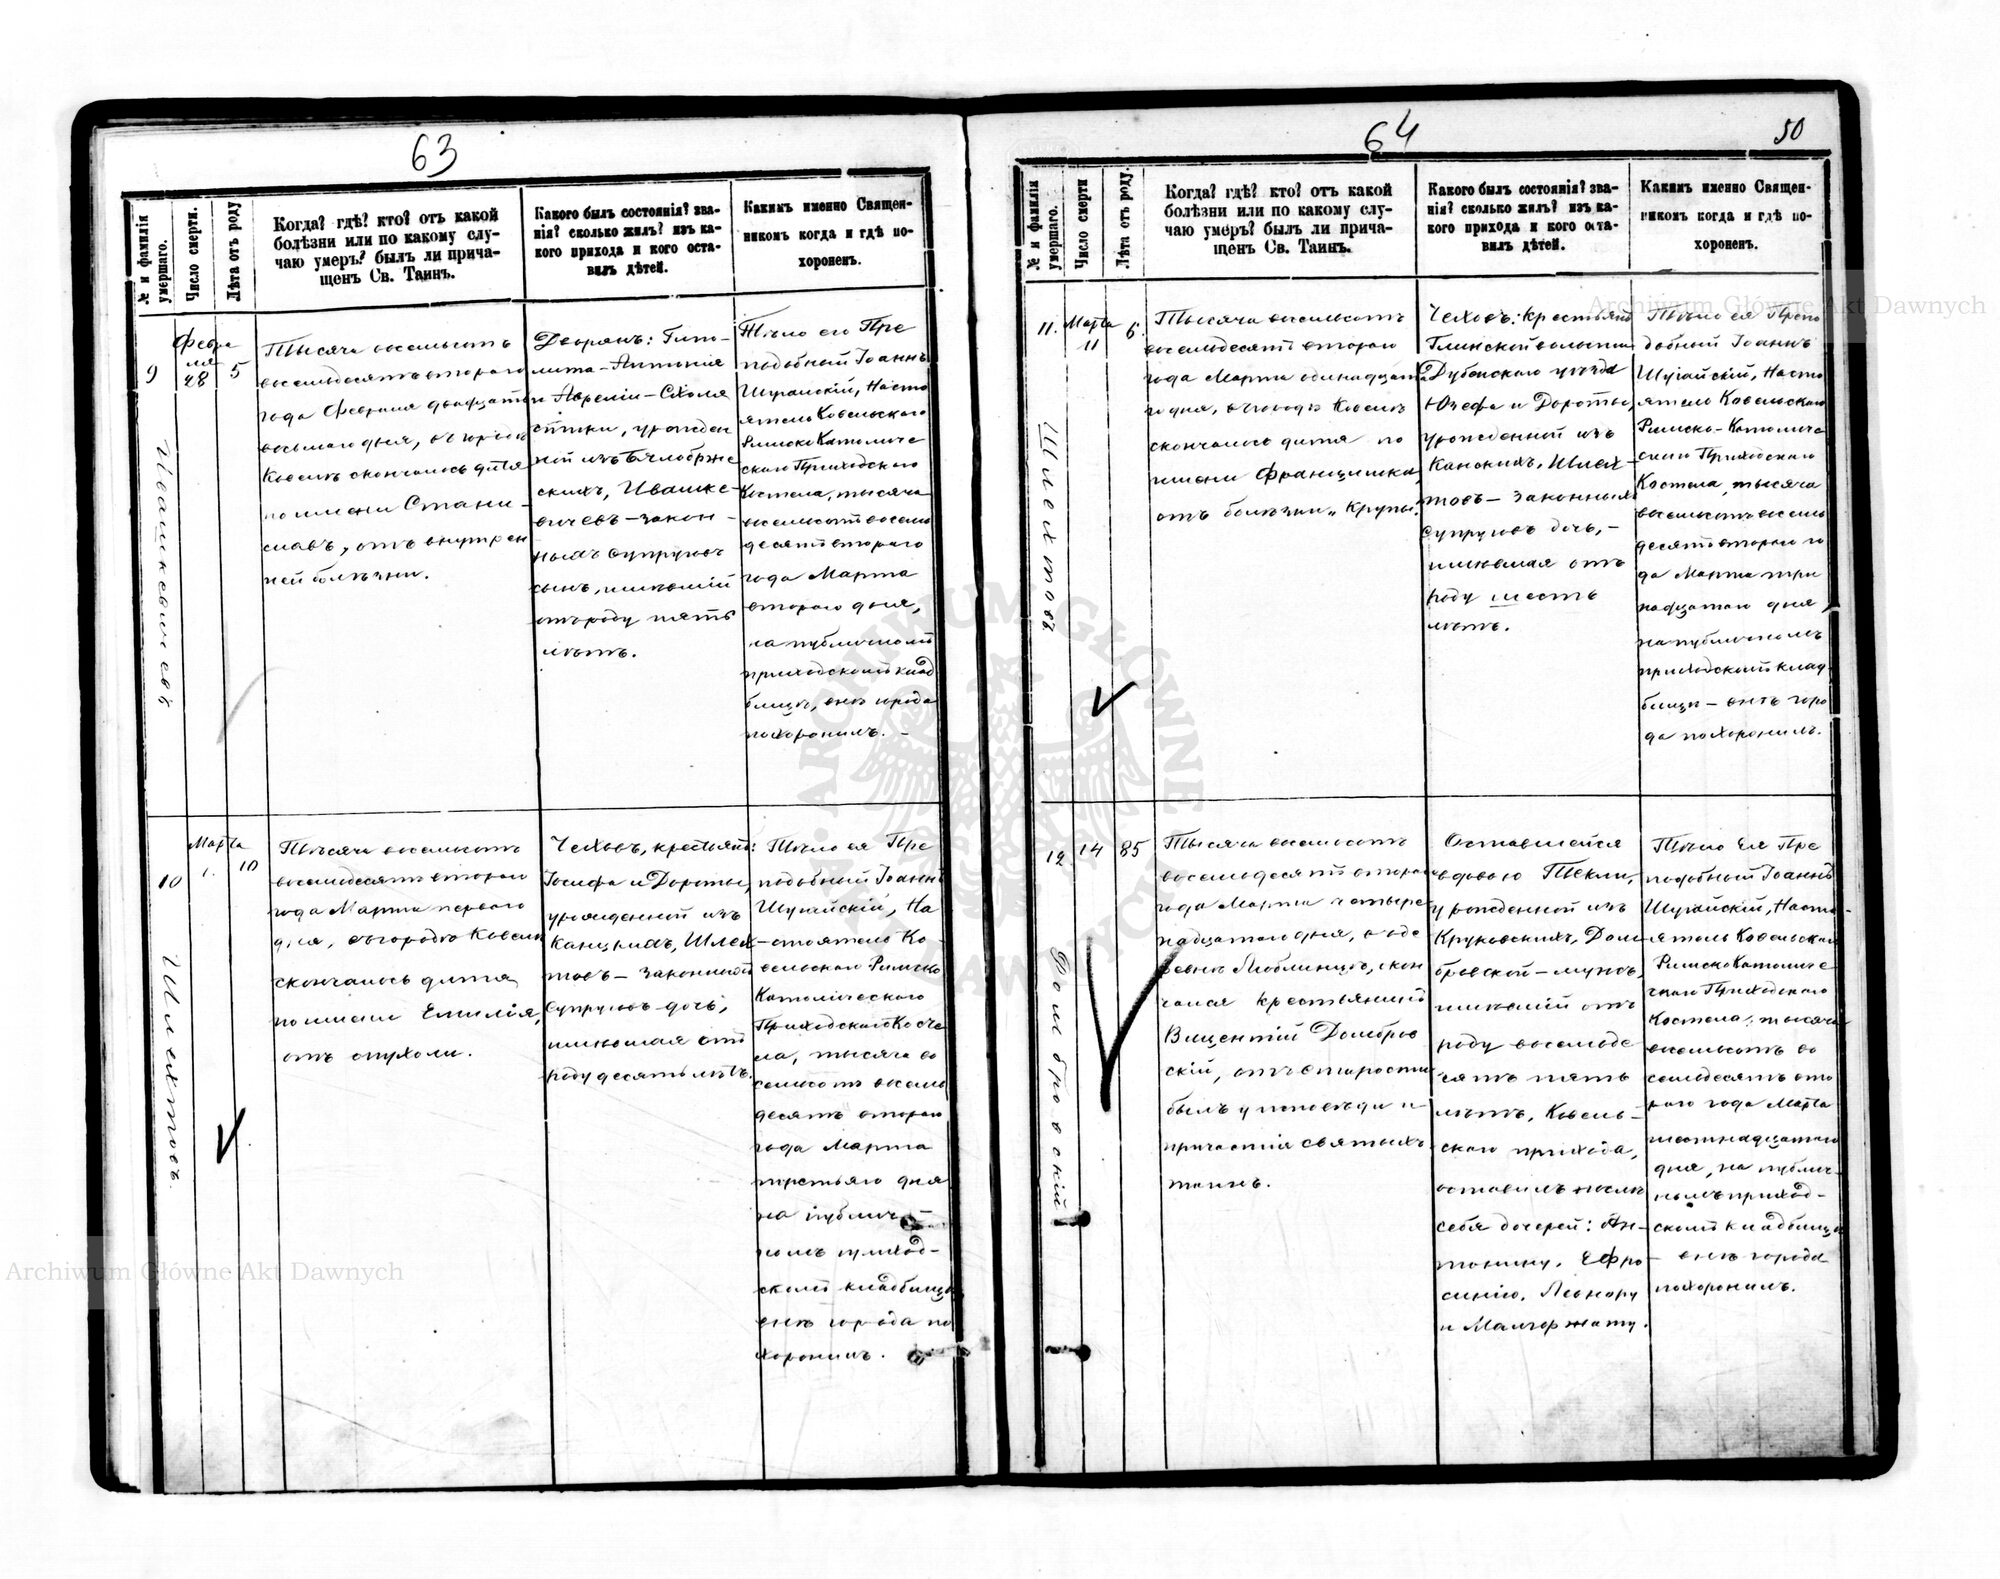 63
№ и фамилія умершаго.
Число смерти.
Лѣта отъ роду
Когда? гдѣ? кто? отъ какой
болѣзни или по какому слу-
чаю умеръ? былъ ли прича-
щенъ Св. Таинъ.
Какого былъ состоянія? зва-
нія? сколько жилъ? изъ ка-
кого прихода и кого оста-
вилъ дѣтей.
Какимъ именно Священ-
никомъ когда и гдѣ по-
хороненъ.
9
Ивашкевичевъ
Февра
ля
28
5
Тысяча восемьсотъ
восемьдесятъ второго
года Февраля двадцать
восьмаго дня, въ городѣ
Ковелѣ скончалось дитя
по имени Стани-
славъ, отъ внутрен
ней болѣзни.
Дворянъ: Гипо-
лита-Антонія
и Аврелии-Схоля
стики, урожден
ной изъ Бялобрже
скихъ, Ивашке-
вичевъ-закон-
ныхъ супруговъ
сынъ, имѣвшій
отъ роду пять
лѣтъ.
Тѣло его Пре
подобный Іоаннъ
Шугайскій, Насто
ятель Ковельского
Римско Католиче
скаго Приходского
Костела, тысяча
восемьсотъ восемь
десятъ второго
года Марта
второго дня,
на публичномъ
приходскомъ клад
бищѣ, внѣ города
похоронилъ. -
10
Шлихтовъ.
Марта
1.
10
Тысяча восемьсотъ
восемьдесятъ второго
года Марта первого
дня, въ городѣ Ковелѣ
скончалось дитя
по имени Емилія,
отъ опухоли.
Чеховъ, крестьянъ:
Іосифа и Дороты,
урожденной изъ
Канцкихъ, Шлих-
товъ - законныхъ
супруговъ дочь,
имѣвшая отъ
роду десять лѣтъ.
Тѣло ея Пре
подобный Іоаннъ
Шугайскій, На
-стоятель Ко-
вельскаго Римско
Католического
Приходского Косте
ла, тысяча во
семьсотъ восемь
десятъ второго
года Марта
третьяго дня
на публич-
номъ приход-
скомъ кладбищѣ
внѣ города по
хоронилъ.
64
50
№ и фамилія умершаго.
Число смерти
Лѣта отъ роду.
Когда? гдѣ? кто? отъ какой
болѣзни или по какому слу-
чаю умеръ? былъ ли прича-
щенъ Св. Таинъ.
Какого былъ состоянія? зва-
нія? сколько жилъ? изъ ка-
кого прихода и кого оста-
вилъ дѣтей.
Какимъ именно Священ-
никомъ когда и гдѣ по-
хороненъ.
11.
Шлихтовъ
Марта
11
6.
Тысяча восемьсотъ
восемьдесятъ второго
года Марта одинадцата
го дня, въ городѣ Ковелѣ
скончалось дитя по
имени Францишка,
отъ болѣзни „Крупы.
Чеховъ: крестьянъ
Глинской волости
Дубенского уѣзда
Юзефа и Дороты,
урожденной изъ
Канскихъ, Шлих-
товъ - законныхъ
супруговъ дочь, -
имѣвшая отъ
роду шесть
лѣтъ.
Тѣло ея Препо
добный Іоаннъ
Шугайскій, Насто
ятель Ковельскаго
Римско-Католиче
скаго Приходского
Костела, тысяча
восемьсотъ восемь
десятъ второго го
да Марта три
надцатаго дня,
на публичномъ
приходскомъ клад-
бищѣ - внѣ горо
да похоронилъ.
12
Домбровскій
14
85
Тысяча восемьсотъ
восемьдесятъ второго
года Марта четыре
надцатаго дня, въ де
ревнѣ Люблинцѣ, скон
чался крестьянинъ
Вицентій Домбров
скій, отъ старости
былъ у исповѣди и
причастія святыхъ
таинъ.
Оставшейся
вдовою Текли,
урожденной изъ
Круковскихъ, Дом
бровской - мужъ,
имѣвшій отъ
роду восемьде
сятъ пять
лѣтъ, Ковель-
скаго прихода,
оставилъ послѣ
себя дочерей: Ан-
тонину, Ефро
синію, Леонору
и Малгоржату.
Тѣло Ея Пре
подобный Іоаннъ
Шугайскій, Насто-
ятель Ковельскаго
Римско Католиче
скаго Приходского
Костела, тысяча
восемьсотъ во
семьдесятъ вто
раго года Марта
шестнадцатаго
дня, на публич-
номъ приход-
скомъ кладбищѣ
- внѣ города
похоронилъ.
Archiwum Główne Akt Dawnych
Archiwum Główne Akt Dawnych